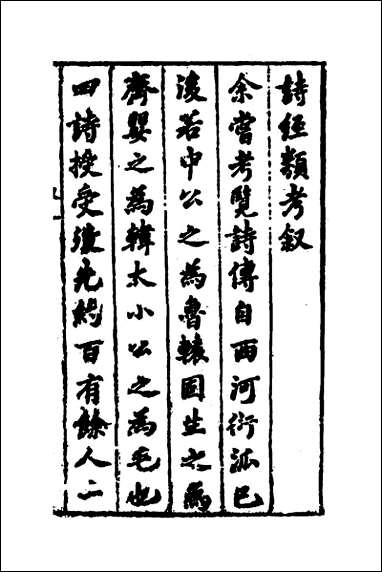 詩經類考叙
余嘗考覽詩傳自西河衍派已
後若申公之為魯轅固生之為
齊嬰之為韓大小公之為毛也
四詩授受後先約百有餘人二